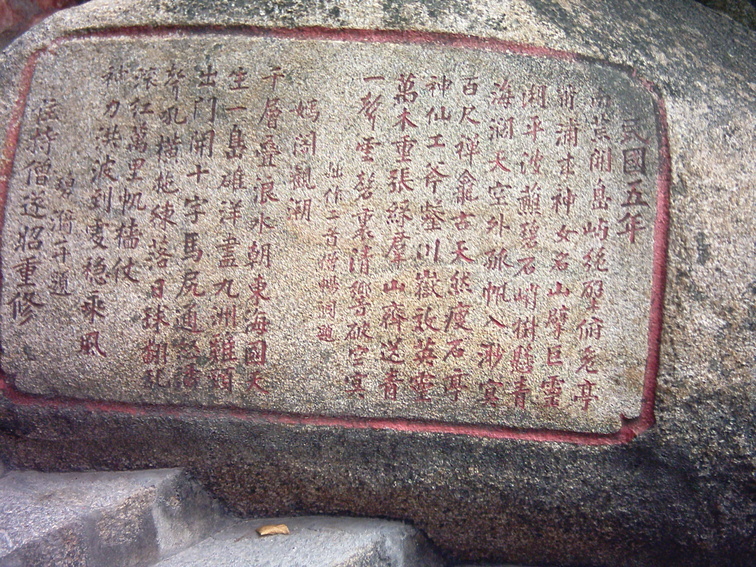 民國五年
南荒開島屿絕壁俯危亭
甫浦求神女名山擘巨靈
潮平波蘸碧石峭樹懸青
海濶天空外孤帆入渺冥
百尺禪龕古天然度石亭
神仙工斧鑿川嶽效英靈
萬木重張綠羣山齊送青
一聲雲磬裏清響破空冥
拙作二首
媽閣觀潮
千層疊浪水朝東海國天
空一島雄洋盡九洲雞頭
出門開十字馬尻通
聲吼橫拖練落日
深紅萬里帆檣仗
神力洪波到處穩乘風
住持僧遂昭重修